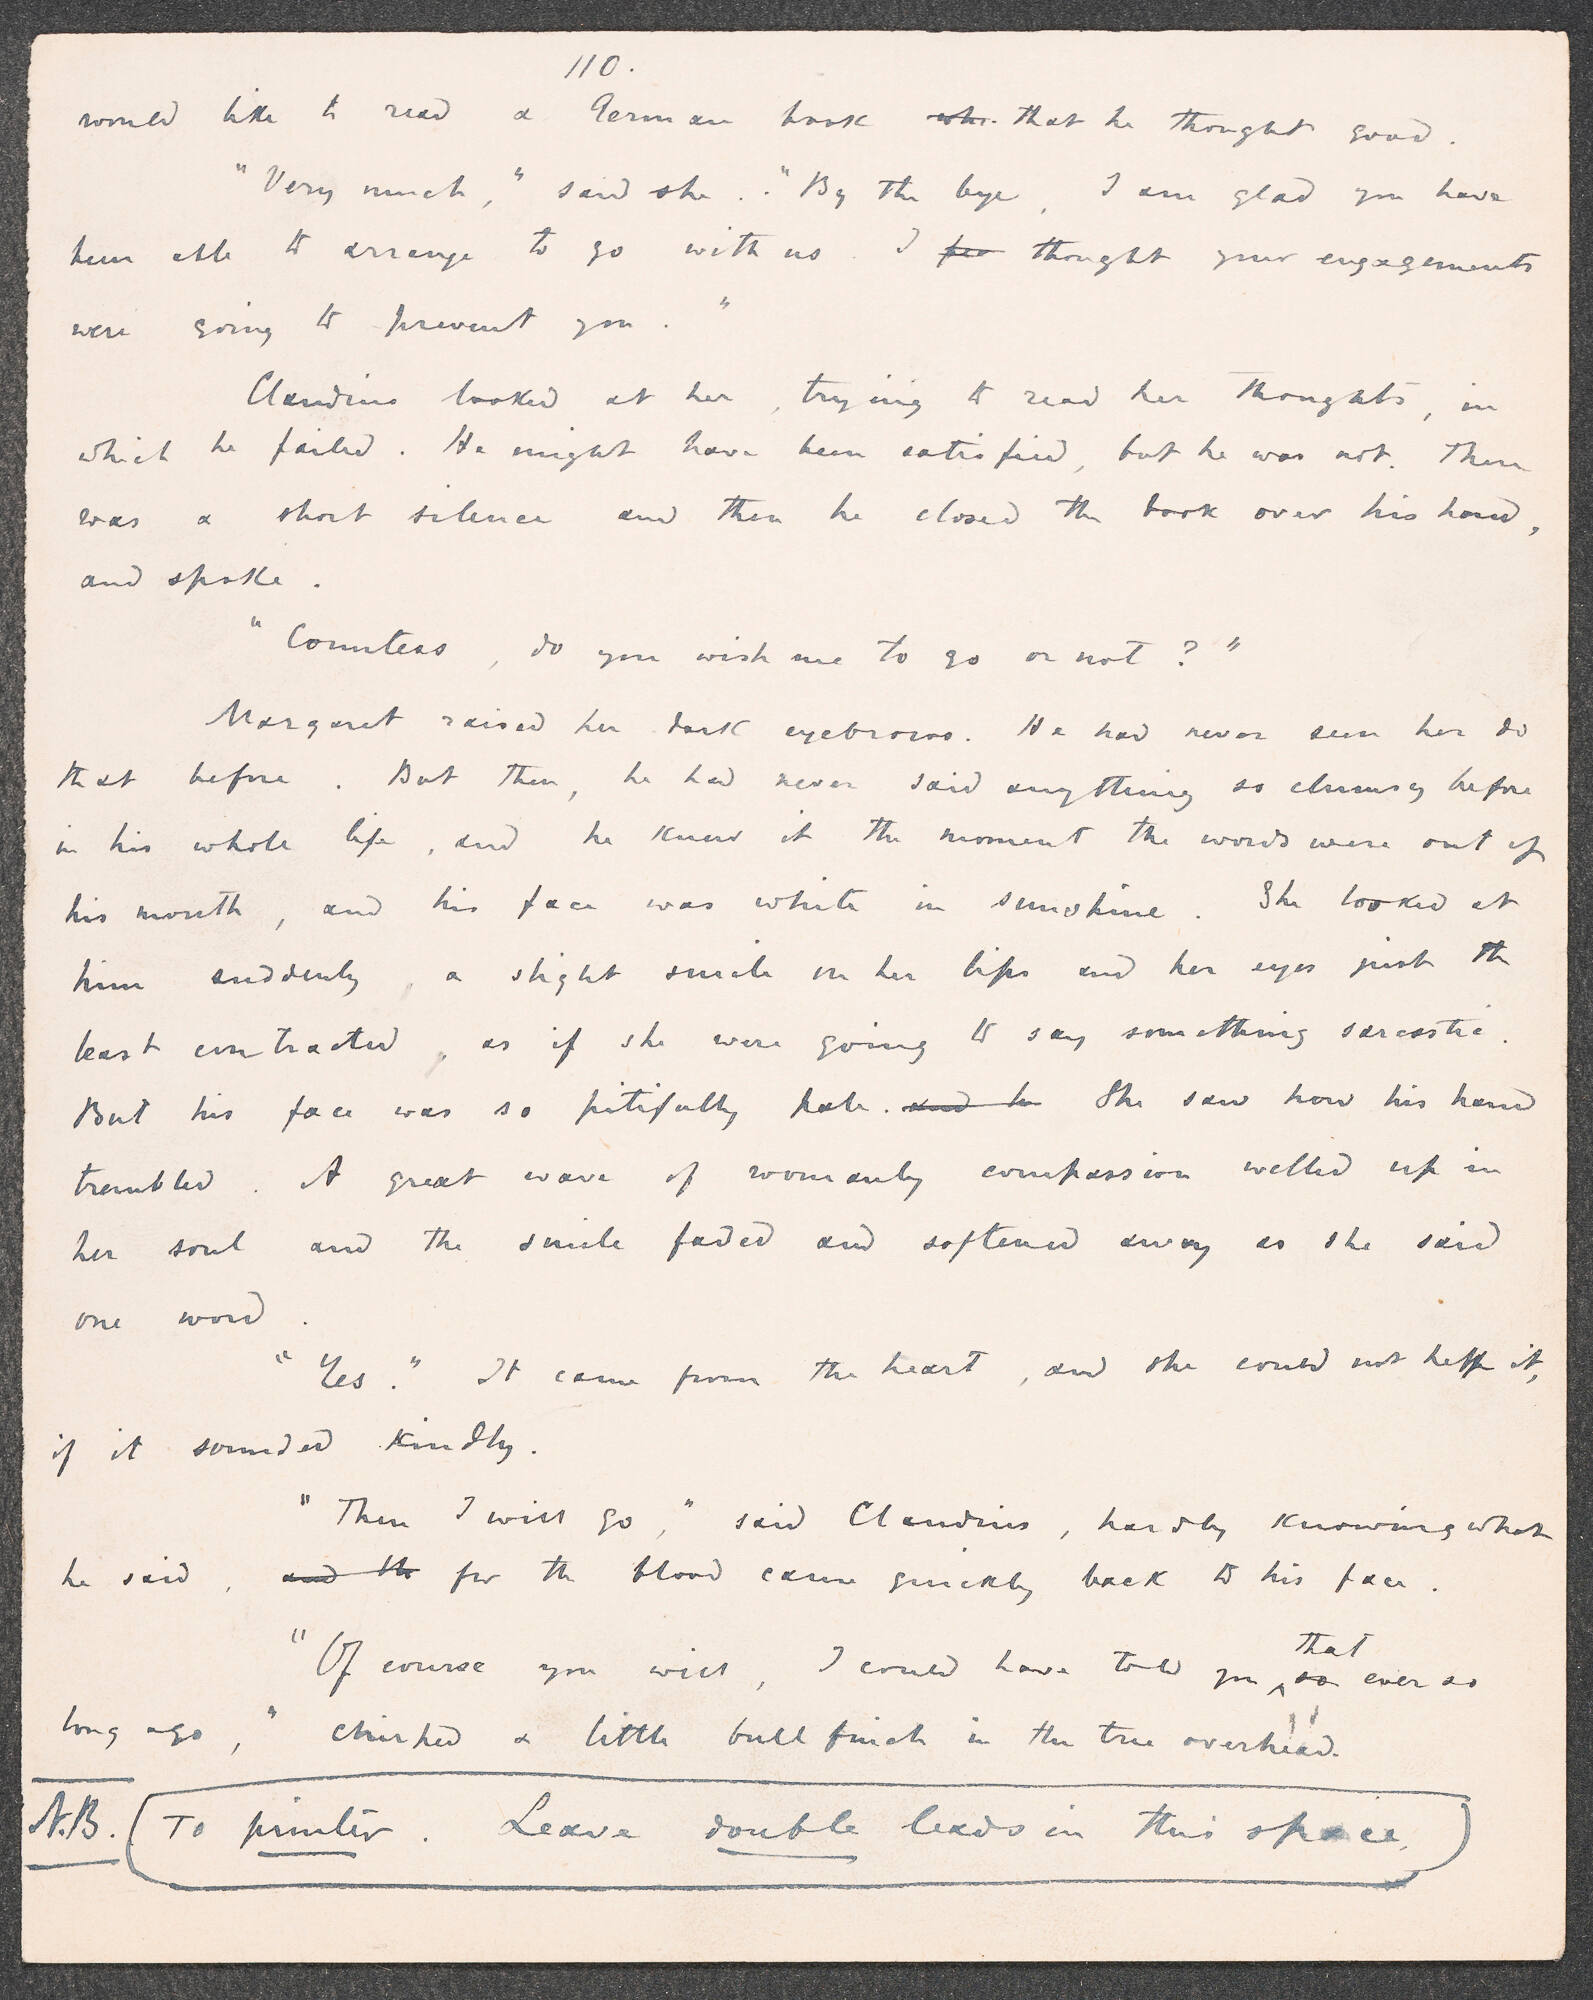 110.
would like to read a German book whi. that he thought good.
"Very much," said she. "By the bye, I am glad you have
been able to arrange to go with us. I fea thought your engagements
were going to prevent you."
Claudius looked at her, trying to read her thoughts, in
which he failed. He might have been satisfied, but he was not. There
was a short silence and then he closed the book over his hand,
and spoke.
"Countess, do you wish me to go or not?"
Margaret raised her dark eyebrows. He had never seen her do
that before. But then, he had never said anything so clumsy before
in his whole life, and he knew it the moment the words were out of
his mouth, and his face was white in sunshine. She looked at
him suddenly, a slight smile on her lips and her eyes just the
least contracted, as if she were going to say something sarcastic.
But his face was so pitifully pale. and he She saw how his hand
trembled. A great wave of womanly compassion welled up in
her soul and the smile faded and softened away as she said
one word.
"Yes." It came from the heart, and she could not help it,
if it sounded kindly.
"Then I will go," said Claudius, hardly knowing what
he said, and the for the blood came quickly back to his face.
"Of course you will, I could have told you so that ever so
long ago," chirped a little bullfinch in the tree overhead.
N.B. To printer. Leave double leads in this space.